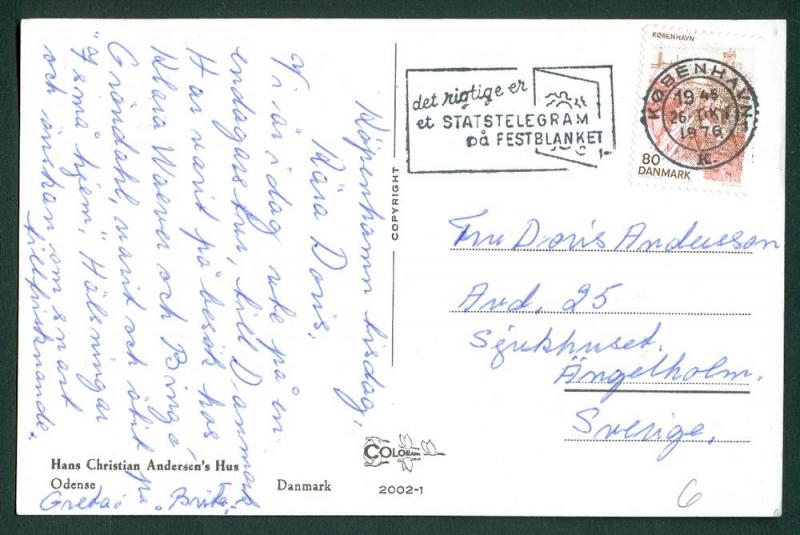 Köpenhamn tisdag,
Kära Doris.
Vi är i dag ute på en
endagarstur, till Danmark
Har varit på besök hos
Klara Waever och Binge,
Gröndahl, varit och ätit på
"7 små hjem." Hälsningar
och önskan om snart
tillfrisknande.
Greta o Brita.
Hans Christian Andersen's Hus
Odense Danmark
COPYRIGHT
COLORAMA
2002-1
det rigtige er
et STATSTELEGRAM
på FESTBLANKET
KØBENHAVN
KØBENHAVN
19 45
26
1976
K.
80
DANMARK
Fru Doris Andersson
Avd. 25
Sjukhuset.
Ängelholm.
Sverige.
6